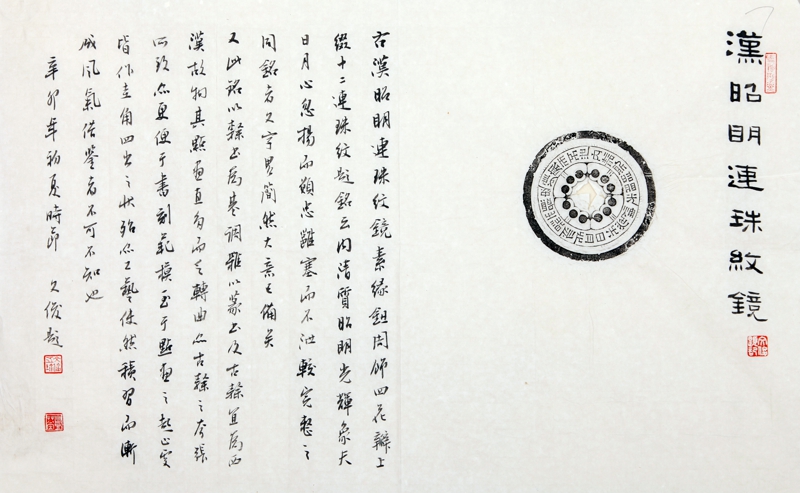 漢昭明連珠紋鏡
右漢昭明連珠紋鏡素緣鈕周飾四花瓣上
綴十二連珠紋題銘云内清質昭明光輝象夫
日月心忽揚而願忠雖塞而不泄較完整之
同銘者文字略簡然大意已備矣
又此銘以隸書為基調雜以篆書及古隸宜為西
漢故物其點畫直多而乏轉曲亦古隸之
所致亦更便于書刻范模至于點畫之起止處
皆作圭角四出之狀殆亦工藝使然積習而漸
成風氣借鑒者不可不知也
辛卯年初夏時節 久俊題